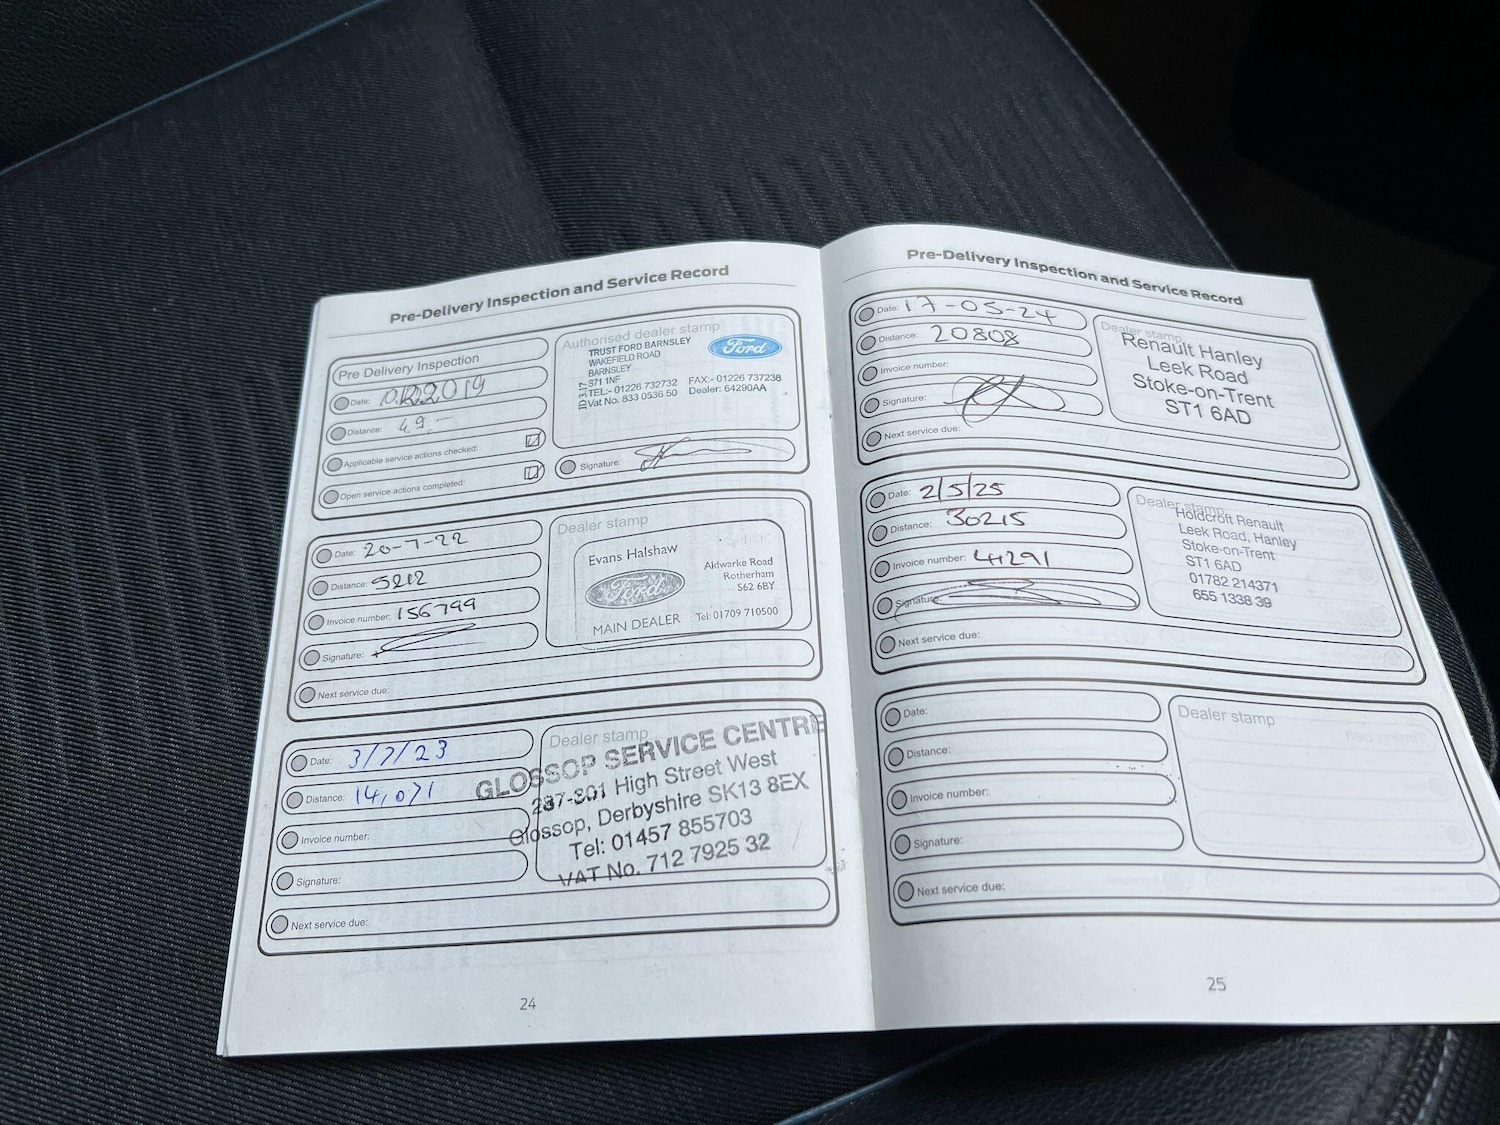 Pre-Delivery Inspection and Service Record
Pre Delivery Inspection
Date:
Distance: 49
Applicable service actions checked:
Open service actions completed:
Authorised dealer stamp
TRUST FORD BARNSLEY
WAKEFIELD ROAD
BARNSLEY
S71 1NF
TEL:- 01226 732732 FAX:- 01226 737238
Vat No. 833 0536 50 Dealer: 64290AA
Ford
Signature:
Date: 20-7-22
Distance: 5212
Invoice number: 156799
Signature:
Next service due:
Dealer stamp
Evans Halshaw
Ford
MAIN DEALER
Aldwarke Road
Rotherham
S62 6BY
Tel: 01709 710500
Date: 3/7/23
Distance: 14,071
Invoice number:
Signature:
Next service due:
Dealer stamp
GLOSSOP SERVICE CENTRE
287-301 High Street West
Glossop, Derbyshire SK13 8EX
Tel: 01457 855703
VAT No. 712 7925 32
24
Pre-Delivery Inspection and Service Record
Date: 17-05-24
Distance: 20808
Invoice number:
Signature:
Next service due:
Dealer stamp
Renault Hanley
Leek Road
Stoke-on-Trent
ST1 6AD
Date: 2/5/25
Distance: 30215
Invoice number: 44291
Signature:
Next service due:
Dealer stamp
Holdcroft Renault
Leek Road, Hanley
Stoke-on-Trent
ST1 6AD
01782 214371
655 1338 39
Date:
Distance:
Invoice number:
Signature:
Next service due:
Dealer stamp
25